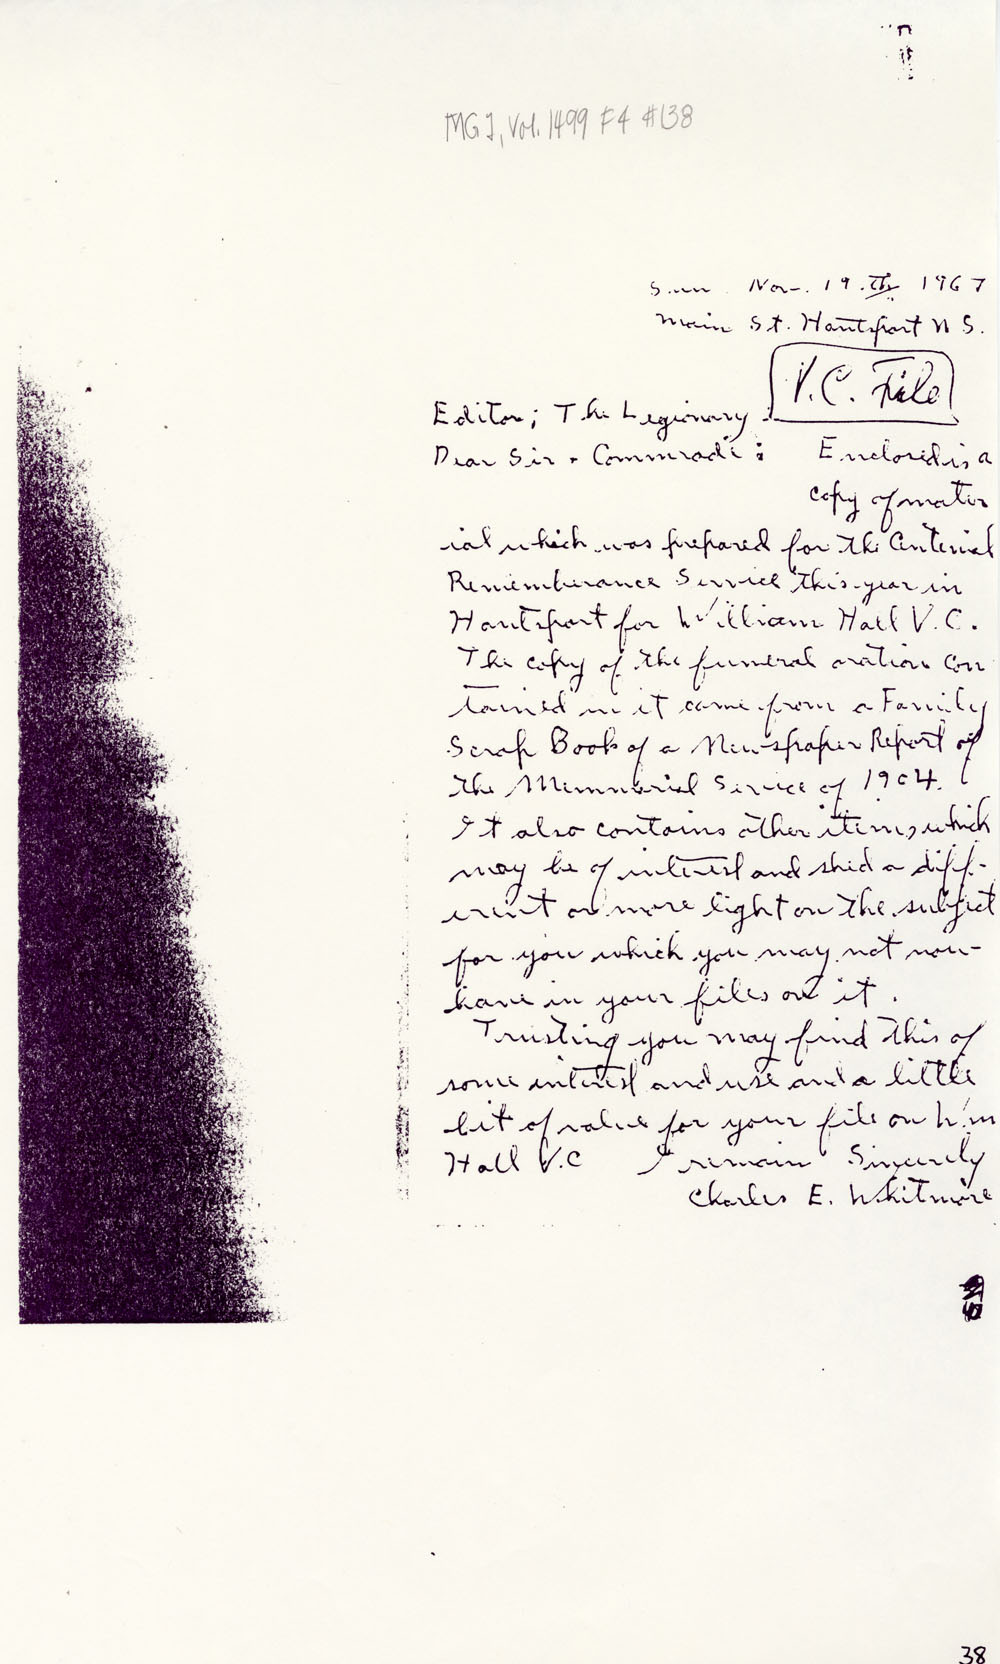 MG1, Vol. 1499 F4 #138
Sun Nov. 19.th 1967
Main St. Hantsport N S.
V.C. File
Editor; The Legionary
Dear Sir + Commrade: Enclosed is a
copy of mater
ial which was prepared for the Centenial
Rememberance Service this year in
Hantsport for William Hall V.C.
The copy of the funeral oration con
tained in it came from a Family
Scrap Book of a Newspaper Report of
the Memmorial Service of 1904.
It also contains other items, which
may be of interest and shed a diff-
erent or more light on the subject
for you which you may not now
have in your files on it.
Trusting you may find this of
some interest and use and a little
bit of value for your file on Wm
Hall V.C I remain Sincerely
Charles E. Whitmore
38